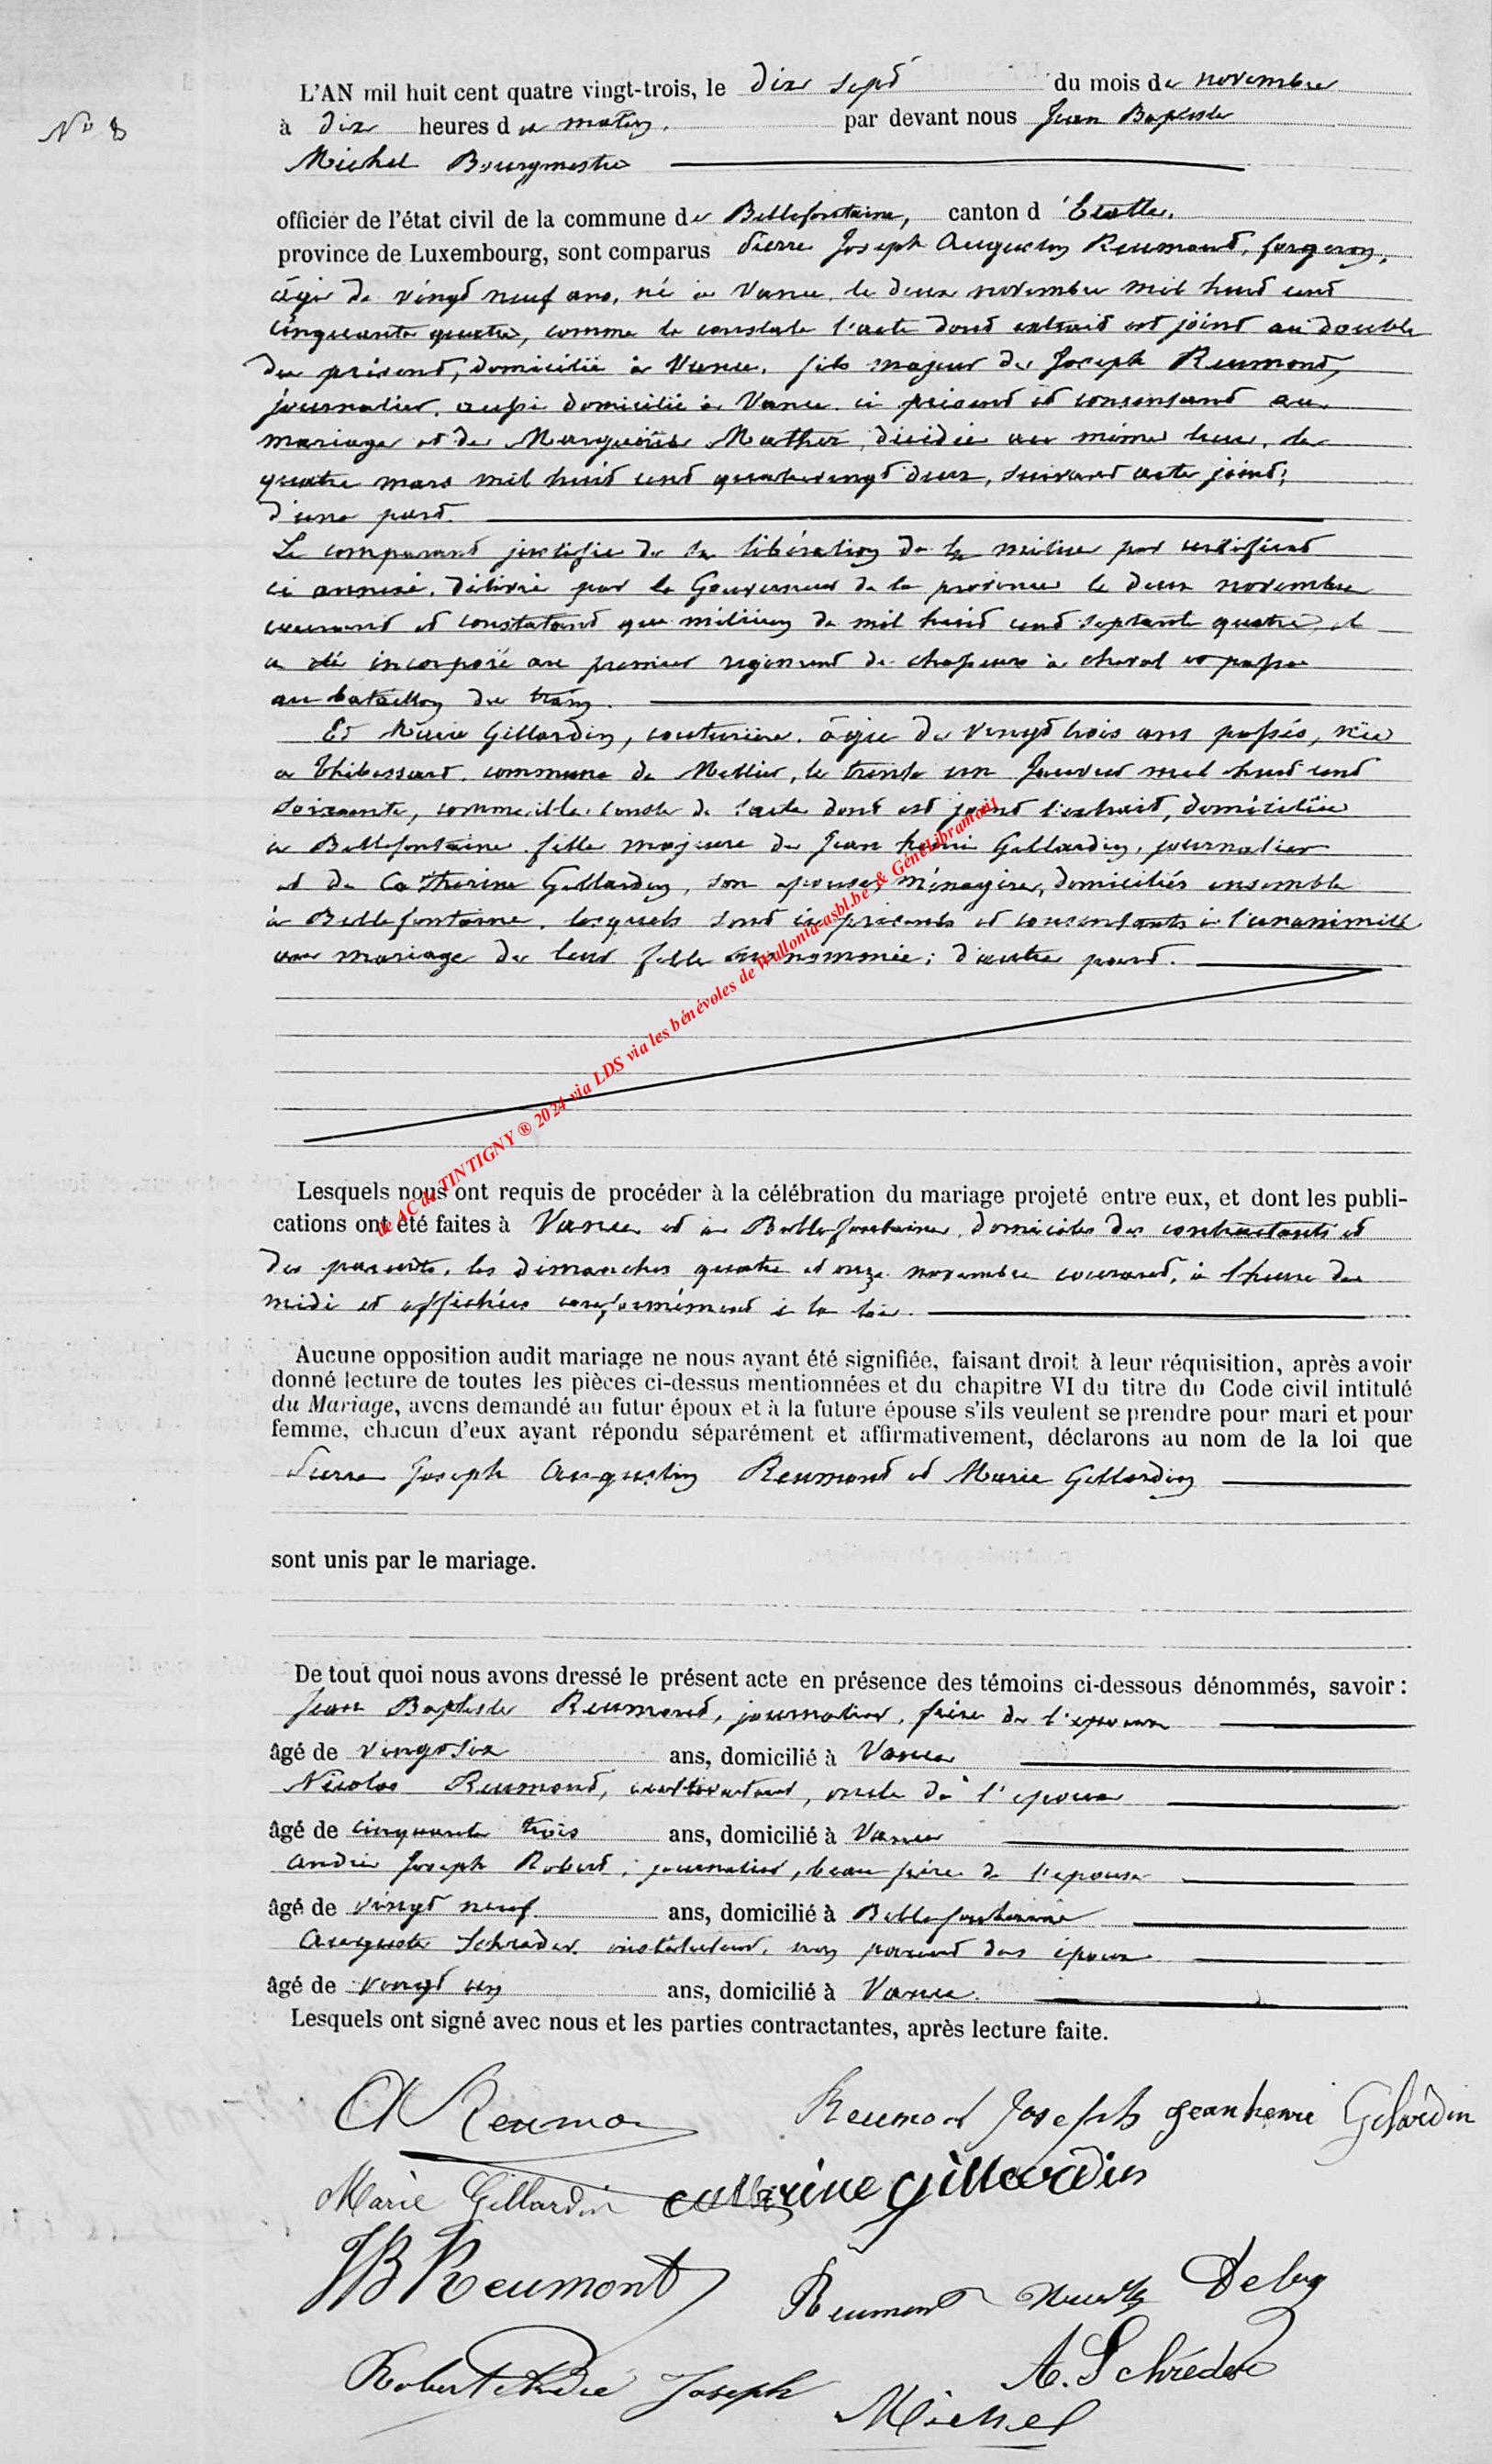 L'AN mil huit cent quatre vingt-trois, le dix sept du mois de novembre
N° 8
à dix heures du matin, par devant nous Jean Baptiste
Michel Bourgmestre
officier de l'état civil de la commune de Bellefontaine, canton d'Etalle,
province de Luxembourg, sont comparus Pierre Joseph Augustin Reumont, forgeron,
âgé de vingt neuf ans, né à Vance, le deux novembre mil huit cent
cinquante quatre, comme le constate l'acte dont extrait est joint au double
du présent, domicilié à Vance, fils majeur de Joseph Reumont,
journalier, aussi domicilié à Vance, ci présent et consentant au
mariage et de Marguerite Mather, décédée au même lieu, le
quatre mars mil huit cent quatrevingt deux, suivant acte joint;
d'une part.
Le comparant justifie de sa libération de la milice par certificat
ci annexé, délivré par le Gouverneur de la province le deux novembre
courant et constatant que milicien de mil huit cent septante quatre, il
a été incorporé au premier régiment de chasseurs à cheval et passé
au bataillon du train.
Et Marie Gillardin, couturière, âgée de vingt trois ans passés, née
à Thibessart, commune de Mellier, le trente un Janvier mil huit cent
soixante, comme il conste de l'acte dont est joint l'extrait, domiciliée
à Bellefontaine, fille majeure de Jean henri Gillardin, journalier
et de Catherine Gillardin, son épouse, ménagère, domiciliés ensemble
à Bellefontaine, lesquels sont ici présents et consentants à l'unanimité
au mariage de leur fille surnommée; d'autre part.
de AC de TINTIGNY ® 2024 via LDS via les bénévoles de Wallonia-asbl.be & GénéLibramont
Lesquels nous ont requis de procéder à la célébration du mariage projeté entre eux, et dont les publi-
cations ont été faites à Vance et à Bellefontaine, domiciles des contractants et
des parents, les dimanches quatre et onze novembre courant, à l'heure de
midi et affichées conformément à la loi.
Aucune opposition audit mariage ne nous ayant été signifiée, faisant droit à leur réquisition, après avoir
donné lecture de toutes les pièces ci-dessus mentionnées et du chapitre VI du titre du Code civil intitulé
du Mariage, avons demandé au futur époux et à la future épouse s'ils veulent se prendre pour mari et pour
femme, chacun d'eux ayant répondu séparément et affirmativement, déclarons au nom de la loi que
Pierre Joseph Augustin Reumont et Marie Gillardin
sont unis par le mariage.
De tout quoi nous avons dressé le présent acte en présence des témoins ci-dessous dénommés, savoir :
Jean Baptiste Reumont, journalier, frère de l'époux
âgé de vingt six ans, domicilié à Vance
Nicolas Reumont, cultivateur, oncle de l'époux
âgé de cinquante trois ans, domicilié à Vance
André Joseph Robert, journalier, beau frère de l'épouse
âgé de vingt neuf ans, domicilié à Bellefontaine
Auguste Schrader, instituteur, non parent des époux
âgé de vingt un ans, domicilié à Vance.
Lesquels ont signé avec nous et les parties contractantes, après lecture faite.
A Reumon
Reumont Joseph jeanhenri Gilardin
Marie Gillardin catherine gillardin
JB Reumont
Reumont
Robert André Joseph
A. Schréder
Michel